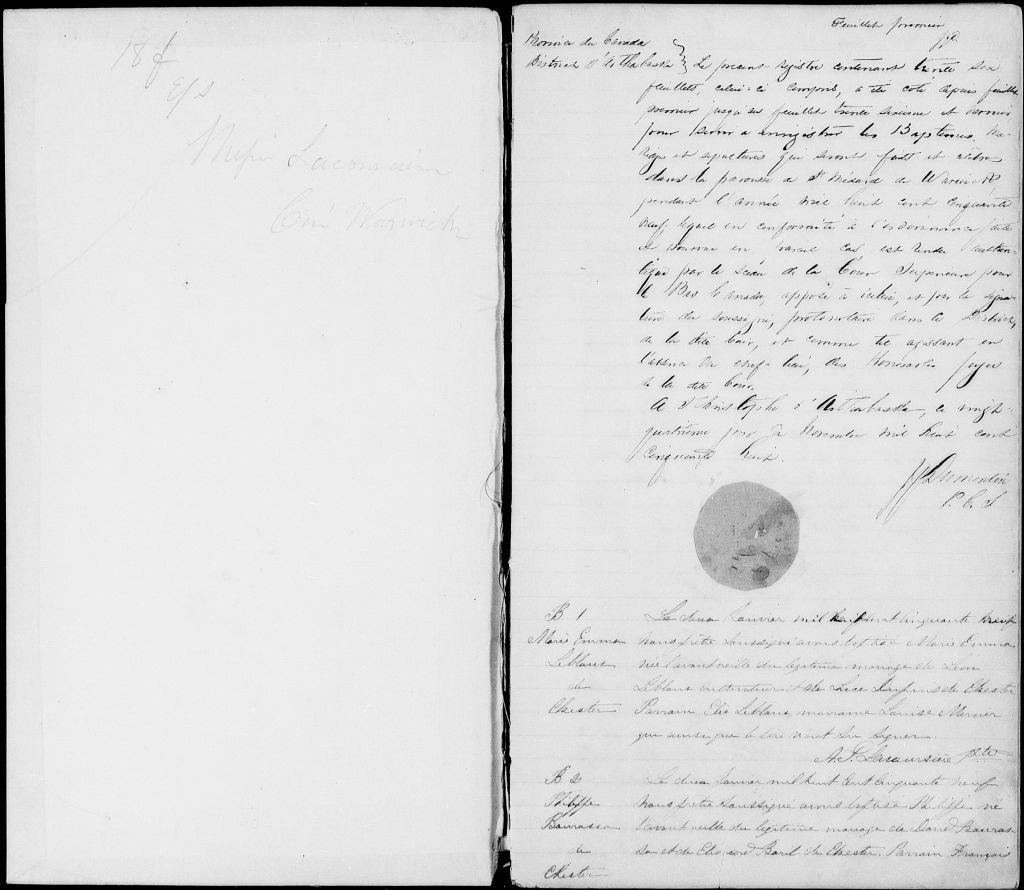 18f
E/S
Messir Lacoursière
Curé Warwick
Feuillet premier
Province du Canada
District d'Arthabaska
Le present registre contenant trente six
feuillets celui-ci compris, a été coté depuis feuillet
premier jusqu'au feuillet trente sixieme et dernier
pour servir a enregistrer les Baptemes Ma-
riages et sepultures qui seront faits et
dans la paroisse de St Médard de Warwick
pendant l'année mil huit cent cinquante
neuf, lequel en conformité à l'ordonnance faite
et pourvue en pareil cas est rendu authen-
tique par le sceau de la Cour Superieure pour
le Bas Canada, apposé à icelui, et par la signa-
ture du soussigné, protonotaire dans le District,
de la dite Cour, et comme tel agissant en
l'absence du chef-lieu, des Honorables Juges
de la dite Cour.
A St Christophe d'Arthabaska, ce vingt-
quatrieme jour de Novembre mil huit cent
cinquante huit.
P. C. S
B 1
Marie Emma
Leblanc
de
Chester
Le deux Janvier mil huit cent cinquante neuf
nous prêtre soussigné avons baptisé Marie Emma
née l'avant veille du legitime mariage de Léon
Leblanc cultivateur et de Luce de Chester
Parrain Elie Leblanc, marraine Louise Mercier
qui ainsi que le père n'ont su signer.
A. P. Lacoursière Ptre
B 2
Philippe
Bourassa
de
Chester
Le deux Janvier mil huit cent cinquante neuf
nous prêtre soussigné avons baptisé Philippe né
l'avant veille du legitime mariage de David Bouras-
sa et de Baril de Chester. Parrain François